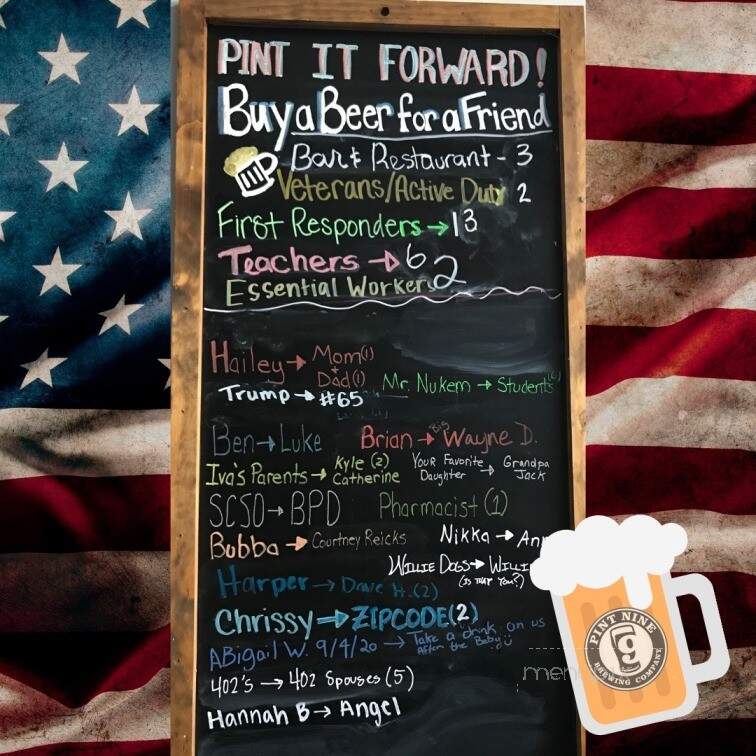 PINT IT FORWARD!
Buy a Beer for a Friend
Bar & Restaurant - 3
Veterans/Active Duty 2
First Responders → 13
Teachers → 6
Essential Workers 2
Hailey → Mom (1) + Dad (1)
Trump → #65
Mr. Nukem → Students
Ben → Luke
Brian → Big Wayne D.
Iva's Parents → Kyle (2) Catherine
Your Favorite Daughter → Grandpa Jack
SCSO → BPD
Pharmacist (1)
Bubba → Courtney Reicks
Nikka →
Willie Dogs →
(Is that you?)
Harper → Dave H. (2)
Chrissy → ZIPCODE (2)
ABigail W. 9/4/20 → Take a drink on us After the Baby
402's → 402 Spouses (5)
Hannah B → Angel
PINT NINE
BREWING COMPANY
9